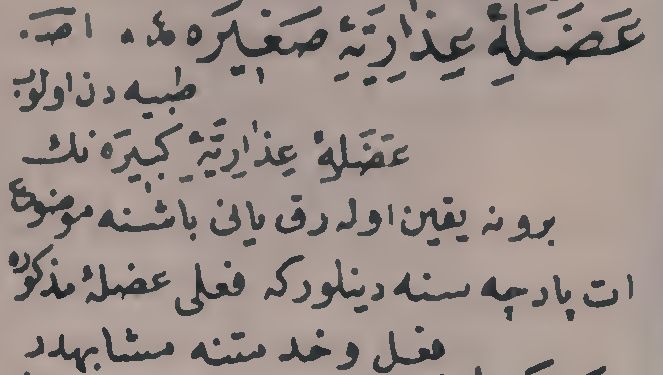 عَضَلَۀِ عِذَارِيَّۀِ صَغِيرَه
طبيه دن اولوب
عَضَلۀِ عِذَارِيَّۀِ كَبِيرَه نك
برونه يقين اوله رق يانى باشنه موضوع
ات پارچه سنه دينلوركه فعلى عضلۀ مذكوره
فعل و خدمتنه مشابهدر